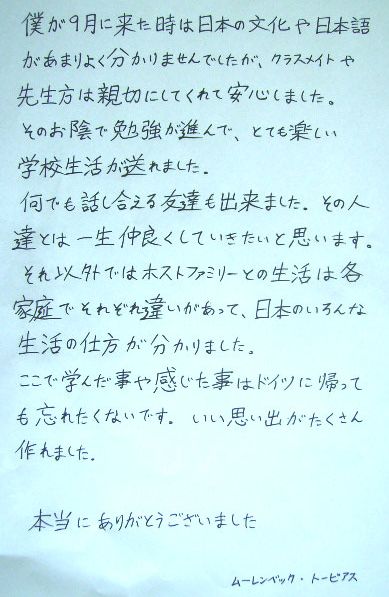 僕が9月に来た時は日本の文化や日本語
があまりよく分かりませんでしたが、クラスメイトや
先生方は親切にしてくれて安心しました。
そのお陰で勉強が進んで、とても楽しい
学校生活が送れました。
何でも話し合える友達も出来ました。その人
達とは一生仲良くしていきたいと思います。
それ以外ではホストファミリーとの生活は各
家庭でそれぞれ違いがあって、日本のいろんな
生活の仕方が分かりました。
ここで学んだ事や感じた事はドイツに帰って
も忘れたくないです。いい思い出がたくさん
作れました。
本当にありがとうございました
ムーレンベック・トービアス